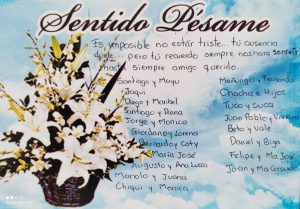 Sentido Pésame
Es imposible no estar triste. tú ausencia
duele... pero tú recuerdo siempre nos hará sonreir
hasta siempre amigo querido.
Santiago y Mayu
Juqui
Diego y Maribel
Santiago y Diana
Jorge y Monica
Giordano y Lorena
Bernardo y Caty
María José
Augusto y Ana Lucia
Manolo y Juana
Chiqui y Monica
Mañungo y Fernanda
Chacha e Hijos
Tuco y Suca
Juan Pablo y
Beto y Vale
Daniel y Biga
Felipe y Ma José
Joan y Ma